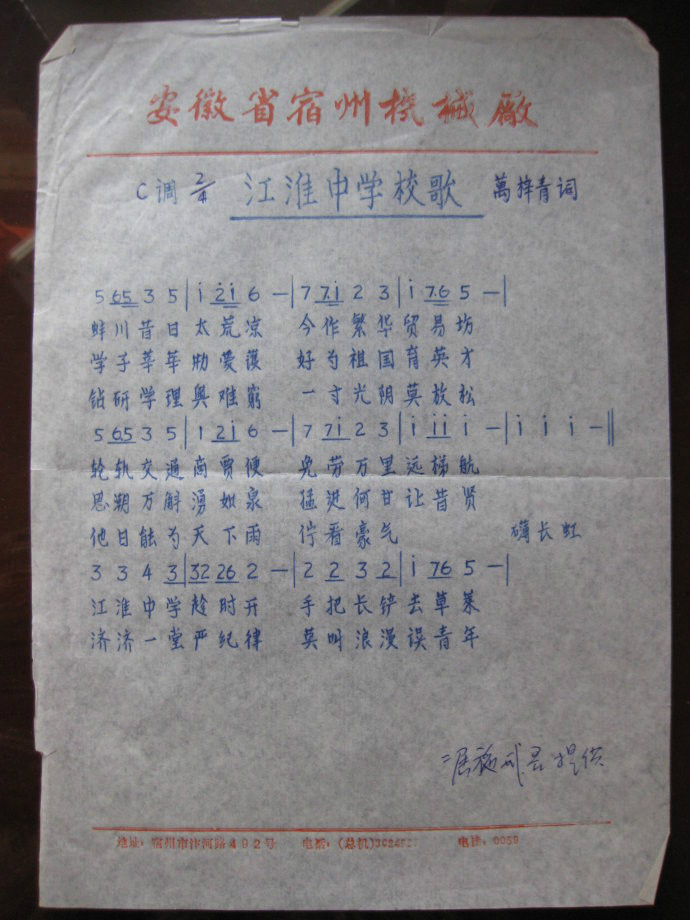 安徽省宿州機械廠
C调 2/4 江淮中学校歌 萬梓青词
5 65 3 5 | i 2i 6 — | 7 7.i 2 3 | i 7.6 5 — |
蚌川昔日太荒凉 今作繁华贸易坊
学子莘莘勤爱護 好为祖国育英才
钻研学理奥难窮 一寸光阴莫放松
5 65 3 5 | 1 2i 6 — | 7 7i 2 3 | i ii i — | i i i — ‖
轮轨交通商贾便 免劳万里远梯航
思潮万斛湧如泉 猛进何甘让昔贤
他日能为天下雨 伫看豪气 长虹
3 3 4 3 | 32 26 2 — | 2 2 3 2 | i 76 5 — |
江淮中学趁时开 手把长铲去草莱
济济一堂严纪律 莫叫浪漫误青年
提供
地址：宿州市汴河路492号 电话：(总机) 电挂：0059